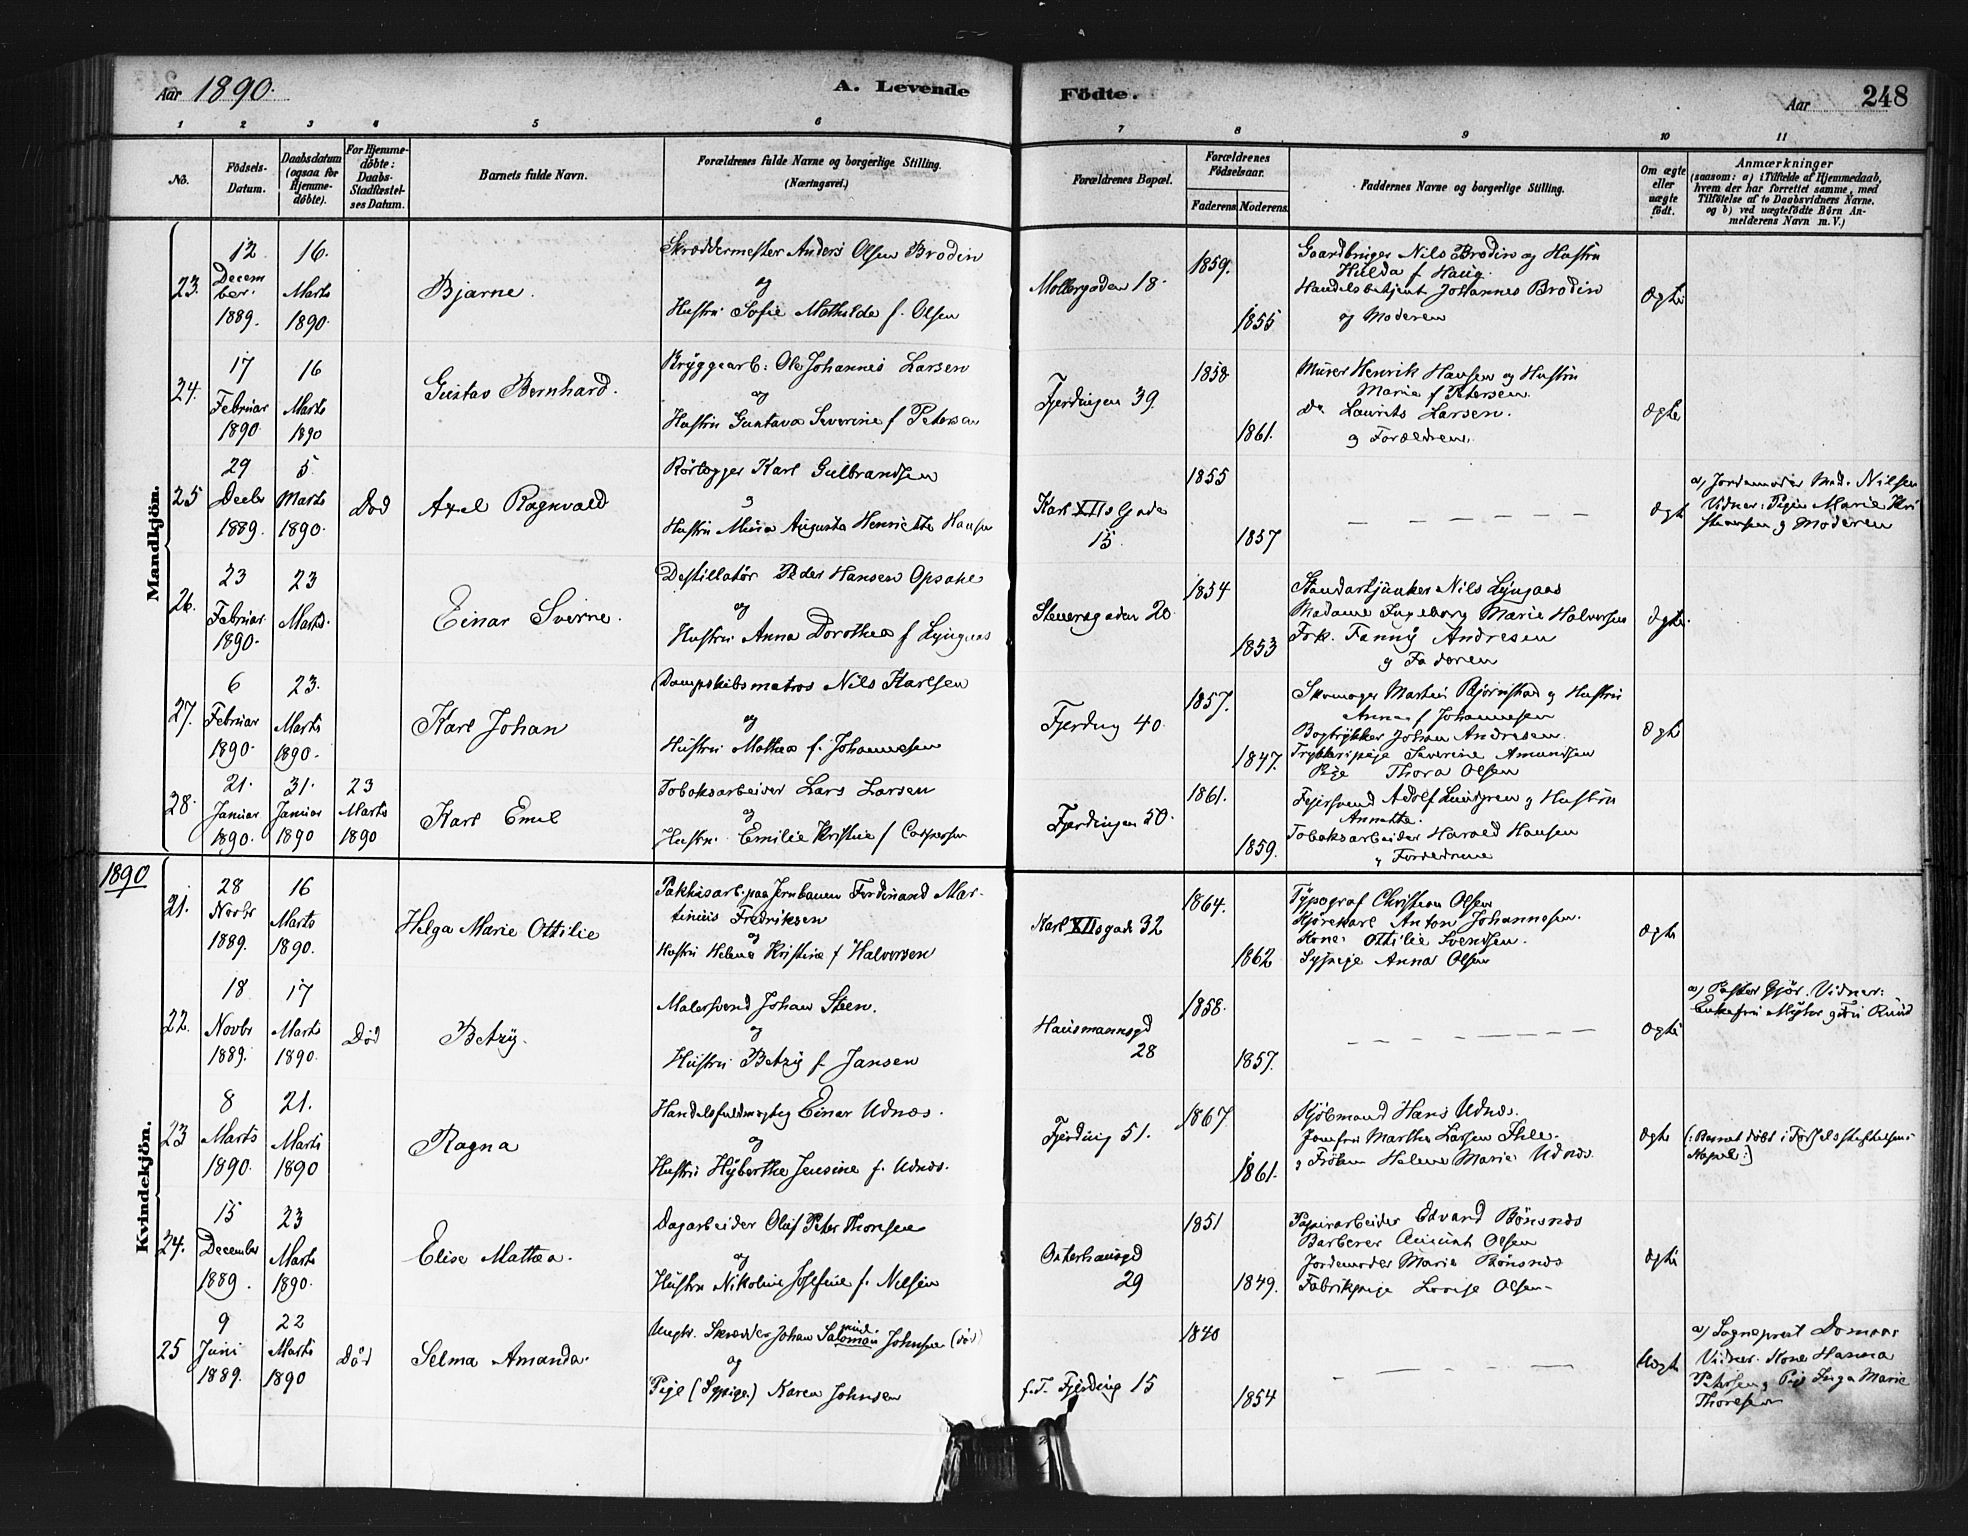 Aar 1890.
A. Levende Födte.
Aar
248
1 2 3 4 5 6 7 8 9 10 11
No.
Födsels-Datum.
Daabsdatum (ogsaa for Hjemmedöbte).
For Hjemmedöbte: Daabs-Stadfæstelses Datum.
Barnets fulde Navn.
Forældrenes fulde Navne og borgerlige Stilling.
(Næringsvei.)
Forældrenes Bopæl.
Forældrenes Födselsaar.
Faderens Moderens.
Faddernes Navne og borgerlige Stilling.
Om ægte eller uægte födt.
Anmærkninger
(saasom: a) i Tilfælde af Hjemmedaab,
hvem der har forrettet samme, med
Tilföielse af to Daabsvidners Navne.
og b) ved uægtefödte Börn Anmelderens Navn m.V.)
Mandkjön.
23.
12 December 1889.
16. Marts 1890.
Bjarne.
Skræddermester Anders Olsen Brodin
og
Hustru Sofie Mathilde f. Olsen
Möllergaden 18.
1859.
1855
Gaardbruger Nils Brodin og Hustru
Hulda f Haug.
Handelsbetjent Johannes Brodin
og Moderen
Ægte
24.
17 Februar 1890
16 Marts 1890
Gustav Bernhard.
Bryggearb: Ole Johannes Larsen
og
Hustru Gustava Severine f Petersen
Fjerdingen 39.
1858
1861.
Murer Henrik Hansen og Hustru
Marie f Petersen
Do Laurits Larsen.
og Forældrene.
Ægte
25
29 Decbr 1889.
5. Marts 1890.
Död
Axel Ragnvald
Rörlægger Karl Gulbrandsen
og
Hustru Maria Augusta Henriette Hansen
Karl XIIs Gade
15.
1855
1857
Ægte
a) Jordemoder Mad. Nilsen
Vidner: Pigen Marie Kri
stensen og Moderen
26.
23 Februar 1890.
23 Marts.
Einar Sverre.
Destillatör Peder Hansen Opsahl
og
Hustru Anna Dorothea f Lyngaas
Steensgaden 20
1854
1853
Standartjunker Nils Lyngaas
Madame Ingeborg Marie Halvorsen
Frk. Fanny Andresen
og Faderen
Ægte.
27.
6 Februar 1890.
23. Marts 1890.
Karl Johan
Dampskibsmatros Nils Karlsen
og
Hustru Mathea f. Johannesen
Fjerding 40.
1857.
1847.
Skomager Martin Björnstad og Hustru
Anna f Johannesen
Bogtrykker Johan Andresen.
Trykkeripige Severine Amundsen
Pige Thora Olsen
Ægte
28.
21. Januar 1890.
31. Januar 1890
23 Marts 1890
Karl Emil
Tobaksarbeider Lars Larsen
og
Hustru Emilie Kristine f Caspersen
Fjerdingen 50.
1861.
1859.
Feiersvend Adolf Lundgren og Hustru
Annette.
Tobaksarbeider Harald Hansen
og Forældrene
1890
Kvindekjön.
21.
28 Novbr 1889.
16 Marts 1890.
Helga Marie Ottilie
Pakhusarb. paa Jernbanen Ferdinand Mar-
tinius Fredriksen
og
Hustru Helene Kristine f Halvorsen
Karl XIIsgade 32
1864.
1862
Typograf Christian Olsen
Kjörekarl Anton Johannesen.
Kone Ottilie Svendsen.
Sypige Anna Olsen
Ægte
22.
18 Novbr 1889.
17 Marts 1890.
Död
Betzy.
Malersvend Johan Steen.
og
Hustru Betzy f Jansen
Hausmannsgd
28
1858.
1857.
Ægte
a) Pastor Gjör. Vidner:
Enkefru Myhr og Fru Ruud
23
8 Marts 1890.
21. Marts 1890
Ragna
Handelsfuldmægtig Einar Udnæs.
og
Hustru Hyberthe Jensine f. Udnæs.
Fjerding 51.
1867
1861.
Kjöbmand Hans Udnæs.
Jomfru Marthe Larsen Ihle.
og Fröken Helene Marie Udnæs.
Ægte
(: Barnet döbt i Födselsstiftelsens
Kapel:)
24.
15 December 1889.
23 Marts 1890.
Elise Mathea.
Dagarbeider Oluf Peter Thoresen
og
Hustru Nikoline Josefine f. Nilsen
Osterhausgd
29
1851
1849.
Papirarbeider Edvard Bönsnæs
Barberer August Olsen
Jordemoder Marie Bönsnæs
Fabrikpige Lovise Olsen
Ægte
25
9 Juni 1889.
22 Marts 1890
Död
Selma Amanda.
Ungk. Skrædder Johan Salomon Johnsen (död)
og
Pige (Sypige.) Karen Johnsen
f. T. Fjerding 15
1840
1854
Uægte
a) Sogneprest Domaas
Vidner. Kone Hanna
Petersen og Pige Inga Marie
Thoresen